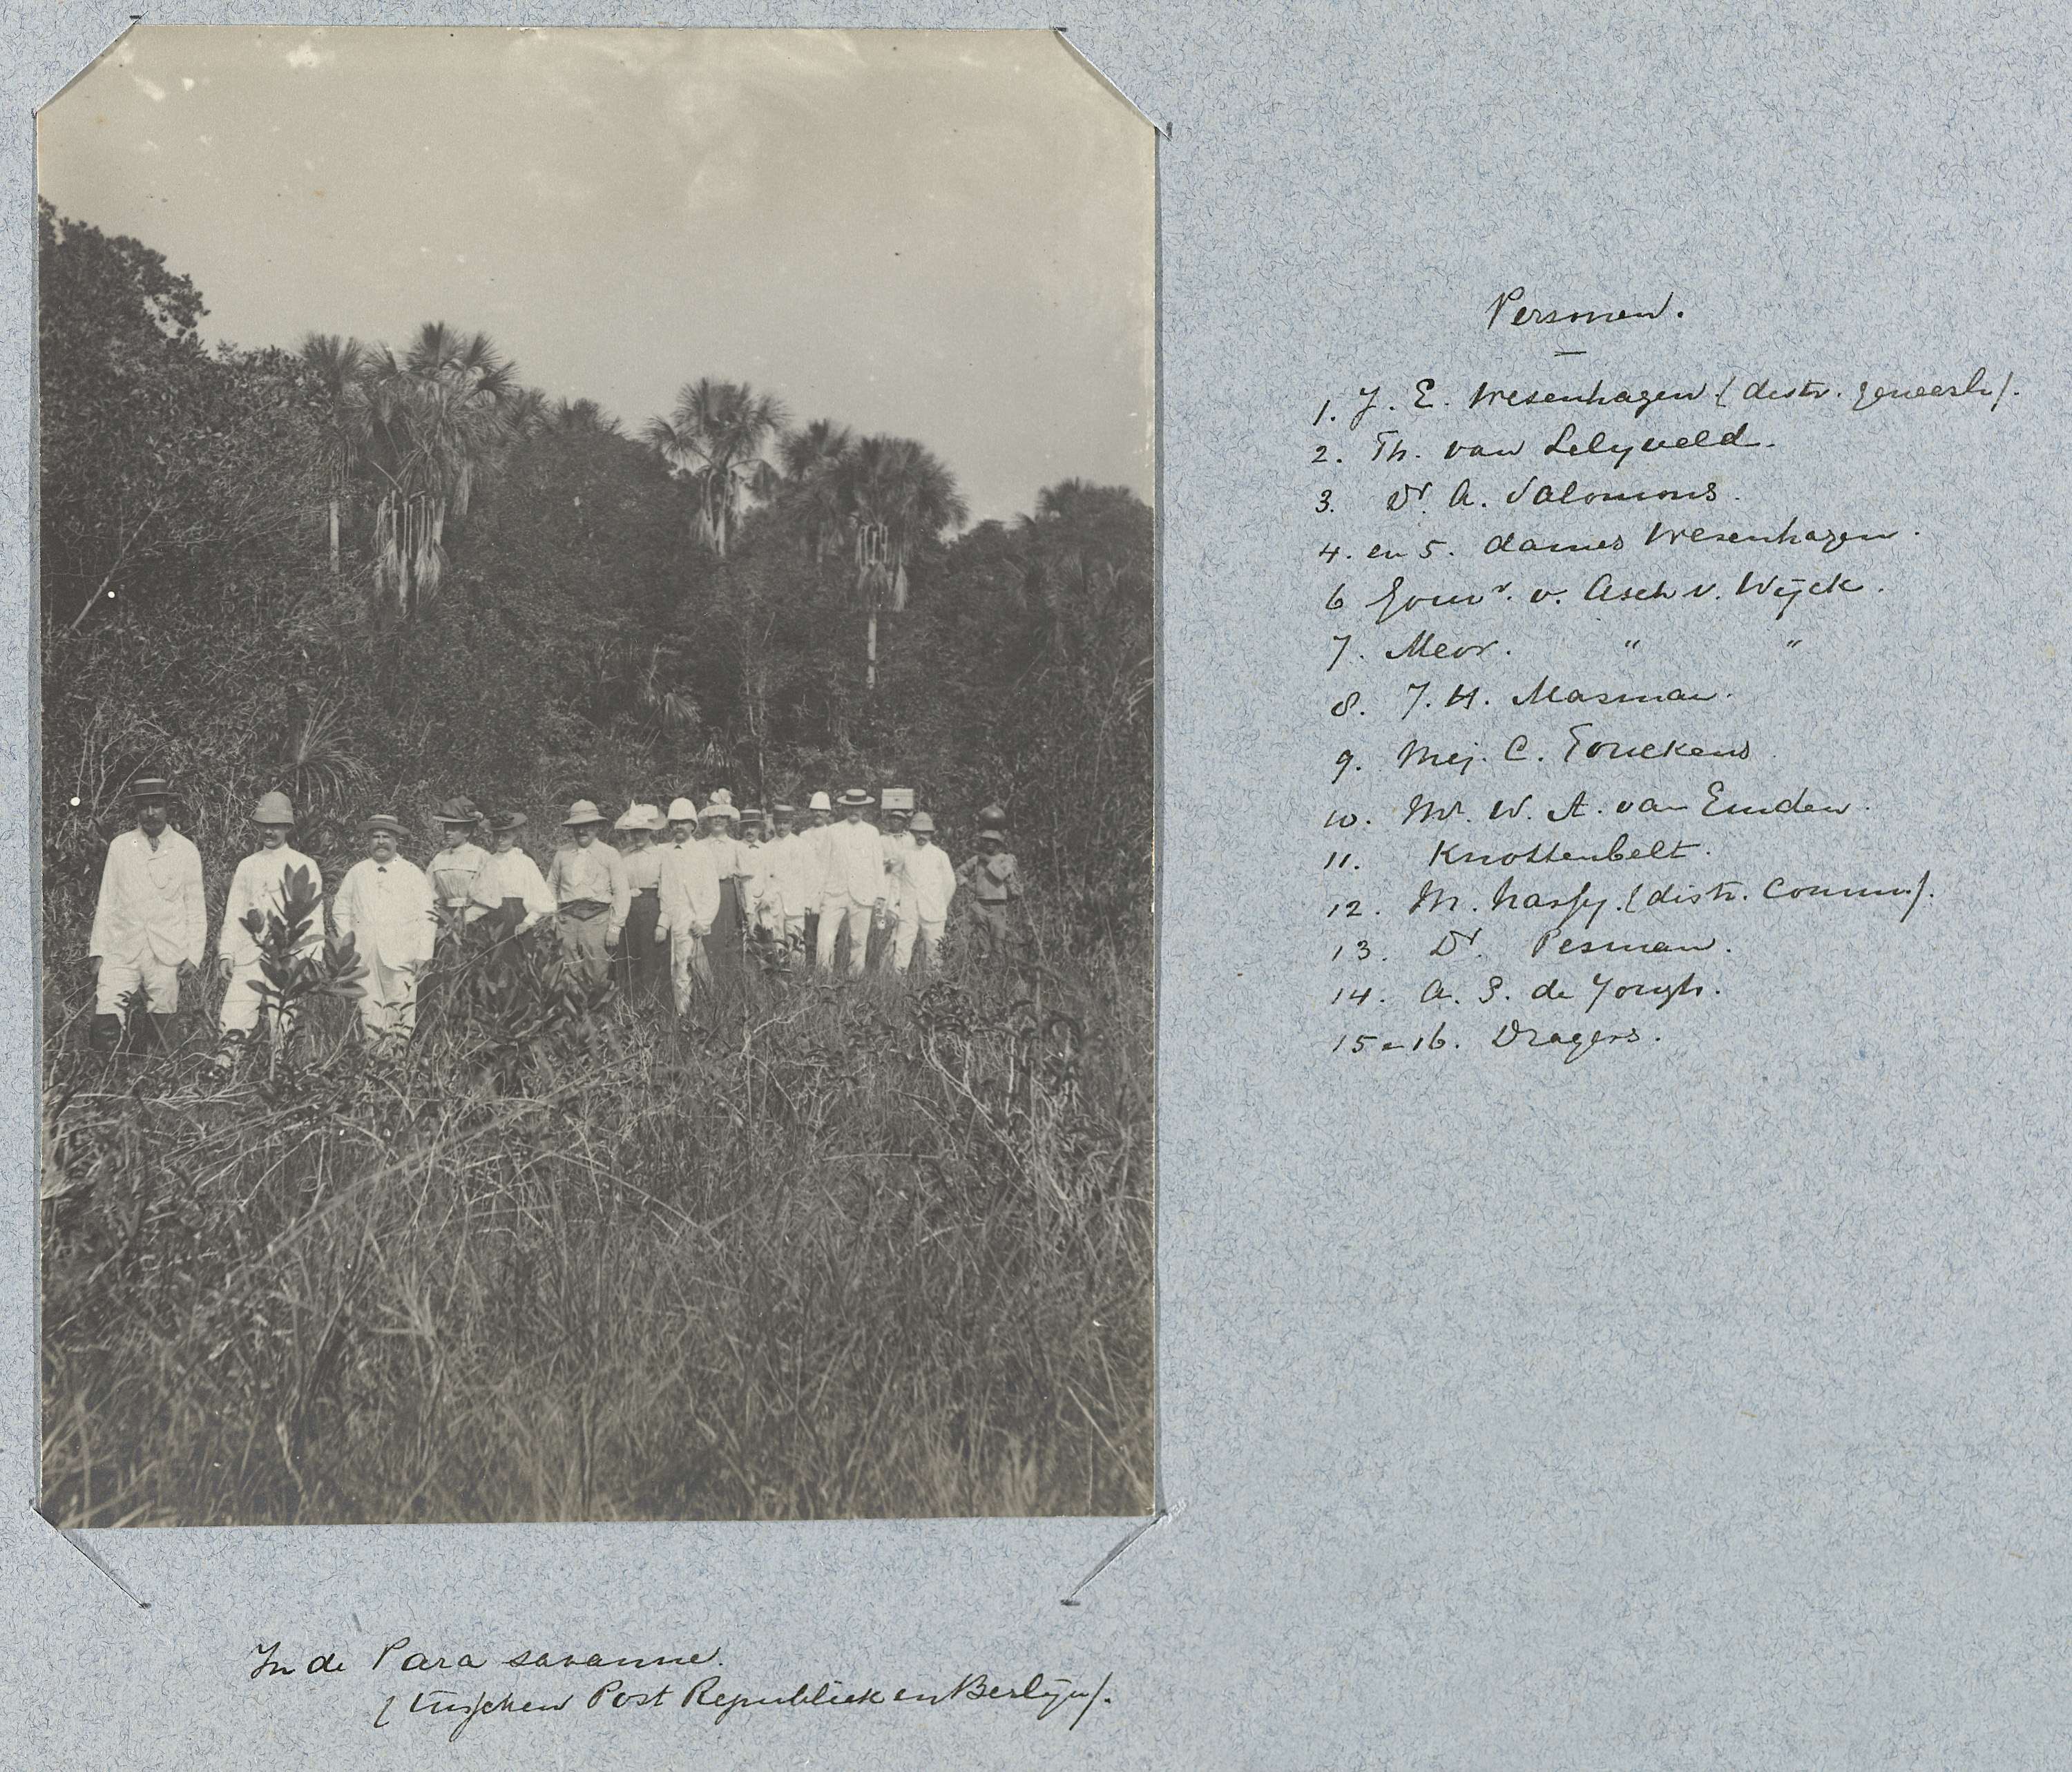 Personen.
1. J. E. Wesenhagen (distr. geneesh).
2. Th. van Lelyveld.
3. Dr A. Salomons.
4. en 5. dames Wesenhagen.
6 Gouvr. v. Asch v. Wijck.
7. Mevr. " "
8. J. H. Masman.
9. Mej. C. Gonckens
10. Mr. W. A. van Emden.
11. Knottenbelt.
12. M. Nassy. (distr. Comm.).
13. Dr. Pesman.
14. A. S. de Jongh.
15-16. Dragers.
In de Para savanne.
(tusschen Post Republiek en Berlijn).